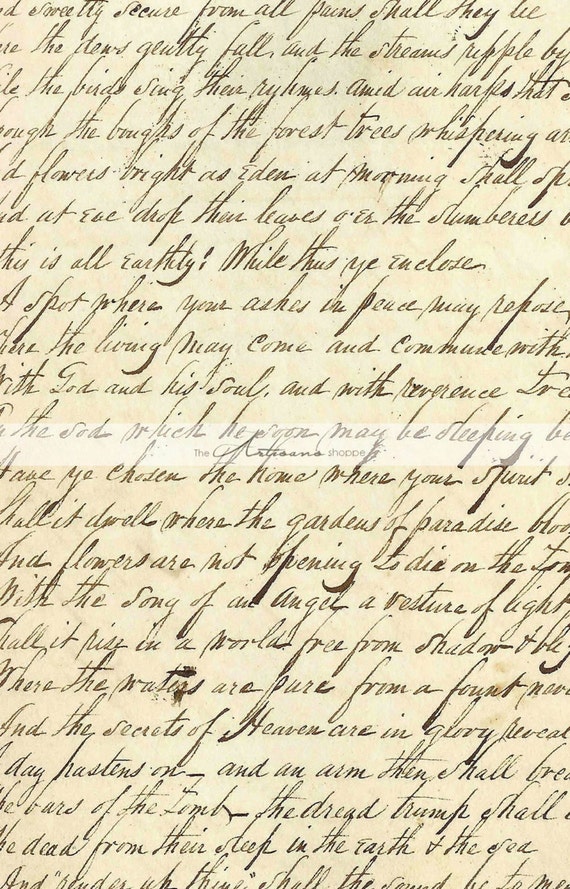 d sweetly secure from all pains shall they lie
re the dews gently fall, and the streams ripple by
le the birds sing their ryhmes. amid air harps that
rough the boughs of the forest trees whispering ar
d flowers bright as Eden at morning shall sp
nd at Eve drop their leaves o'er the slumberers
this is all Earthly! While thus ye Enclose
A spot where your ashes in peace may repose
here the living may come and commune with
With God and his soul, and with reverence
the sod which he soon may be sleeping be
The Artisans shoppe
Have ye chosen the home where your spirit s
hall it dwell where the gardens of paradise bloo
And flowers are not opening to die on the Tom
With the song of an Angel a vesture of light
hall it rise in a world free from shadow &
Where the waters are pure from a fount neve
And the secrets of Heaven are in glory reveal
day hastens on — and an arm then shall brea
he bars of the Tomb — the dread trump shall
he dead from their sleep in the Earth & the Sea
And "render up thine" shall the sound be to